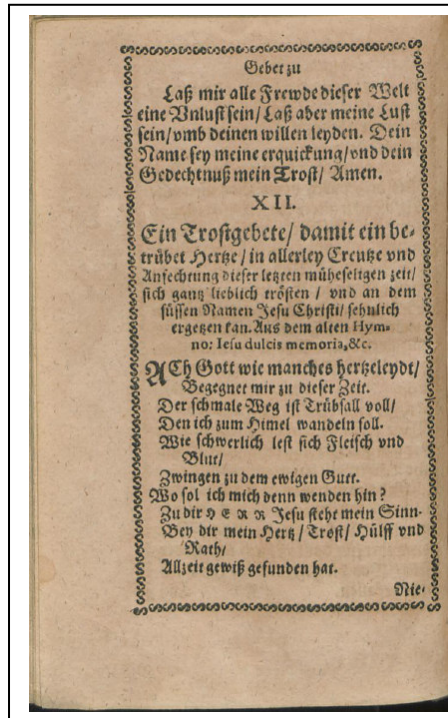 Gebet zu
Laß mir alle Frewde dieser Welt
eine Vnlust sein/ Laß aber meine Lust
sein/ vmb deinen willen leyden. Dein
Name sey meine erquickung/ vnd dein
Gedechtnuß mein Trost/ Amen.
XII.
Ein Trostgebete/ damit ein be-
trübet Hertze/ in allerley Creutze vnd
Anfechtung dieser letzten müheseligen zeit/
sich gantz lieblich trösten / vnd an dem
süssen Namen Jesu Christi/ sehnlich
ergetzen kan. Aus dem alten Hym-
no: Iesu dulcis memoria, &c.
ACh Gott wie manches hertzeleydt/
Begegnet mir zu dieser Zeit.
Der schmale Weg ist Trübsall voll/
Den ich zum Himel wandeln soll.
Wie schwerlich lest sich Fleisch vnd
Blut/
Zwingen zu dem ewigen Gutt.
Wo sol ich mich denn wenden hin?
Zu dir HERR Jesu steht mein Sinn.
Bey dir mein Hertz / Trost/ Hülff vnd
Rath/
Allzeit gewiß gefunden hat.
Nie-